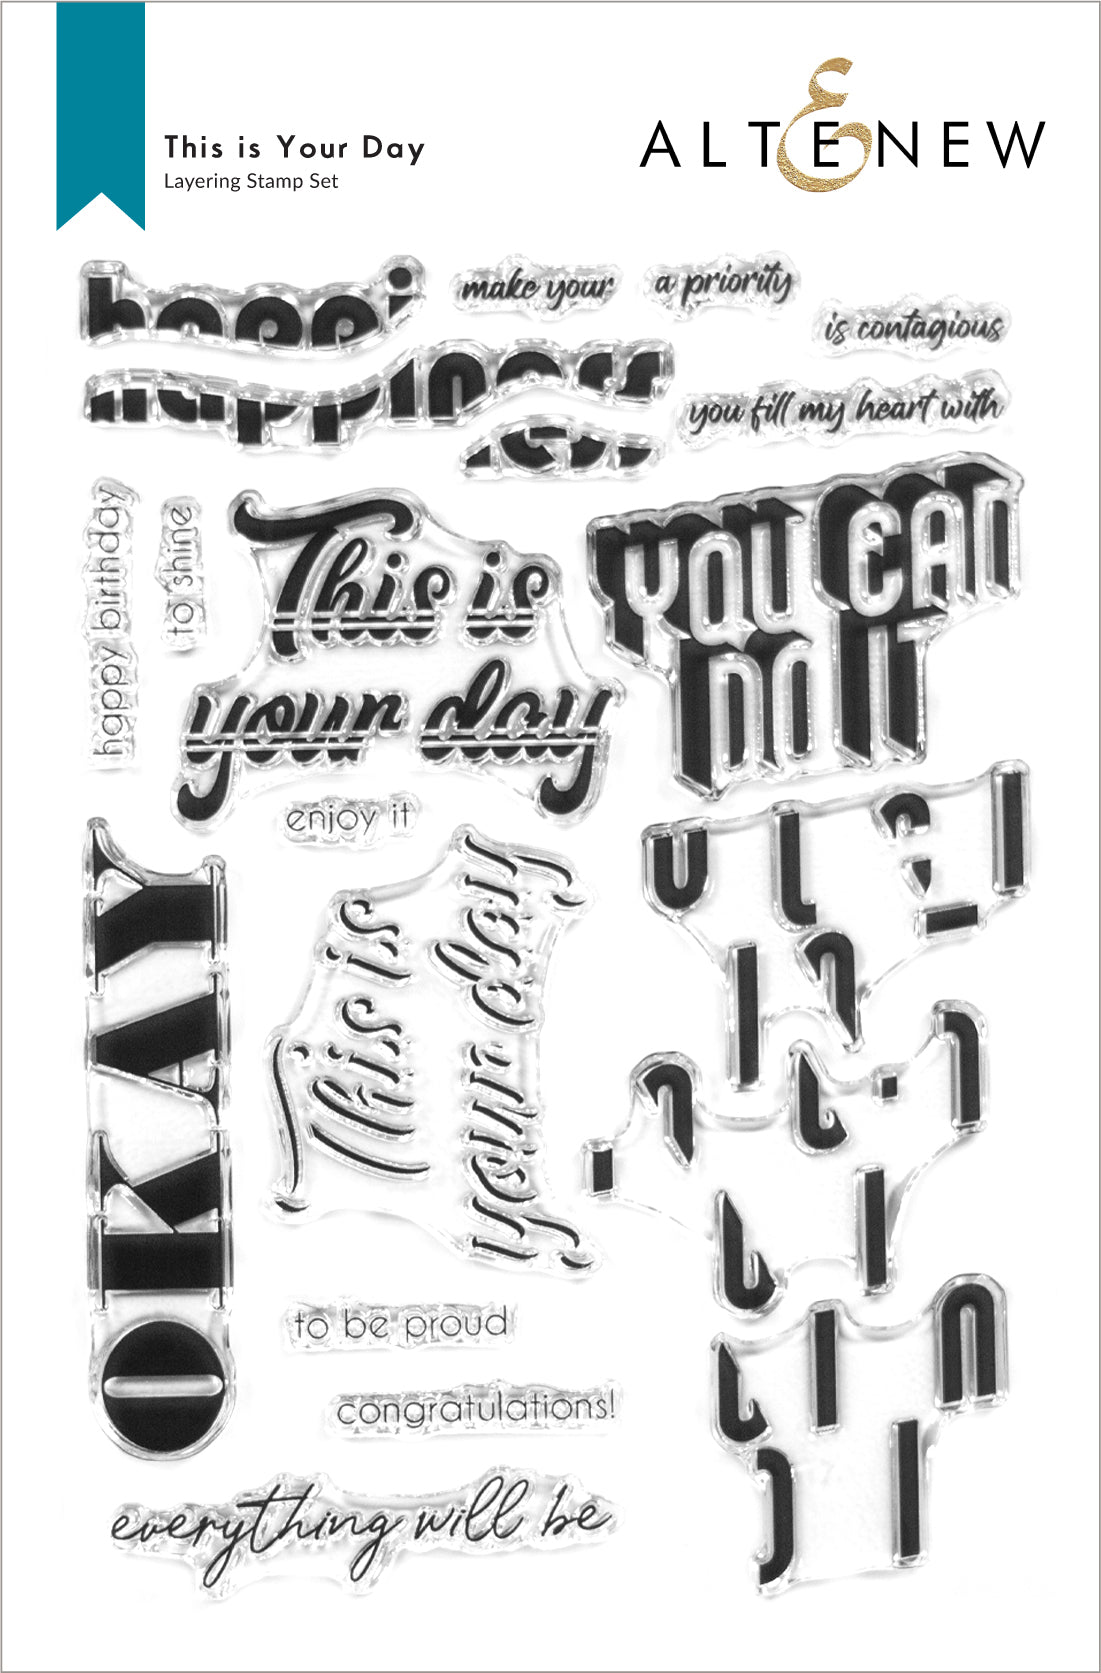 This is Your Day
Layering Stamp Set
ALTENEW
make your
a priority
is contagious
happiness
you fill my heart with
happy birthday
to shine
This is
your day
YOU CAN
DO IT
enjoy it
OKAY
This is
your day
to be proud
congratulations!
everything will be